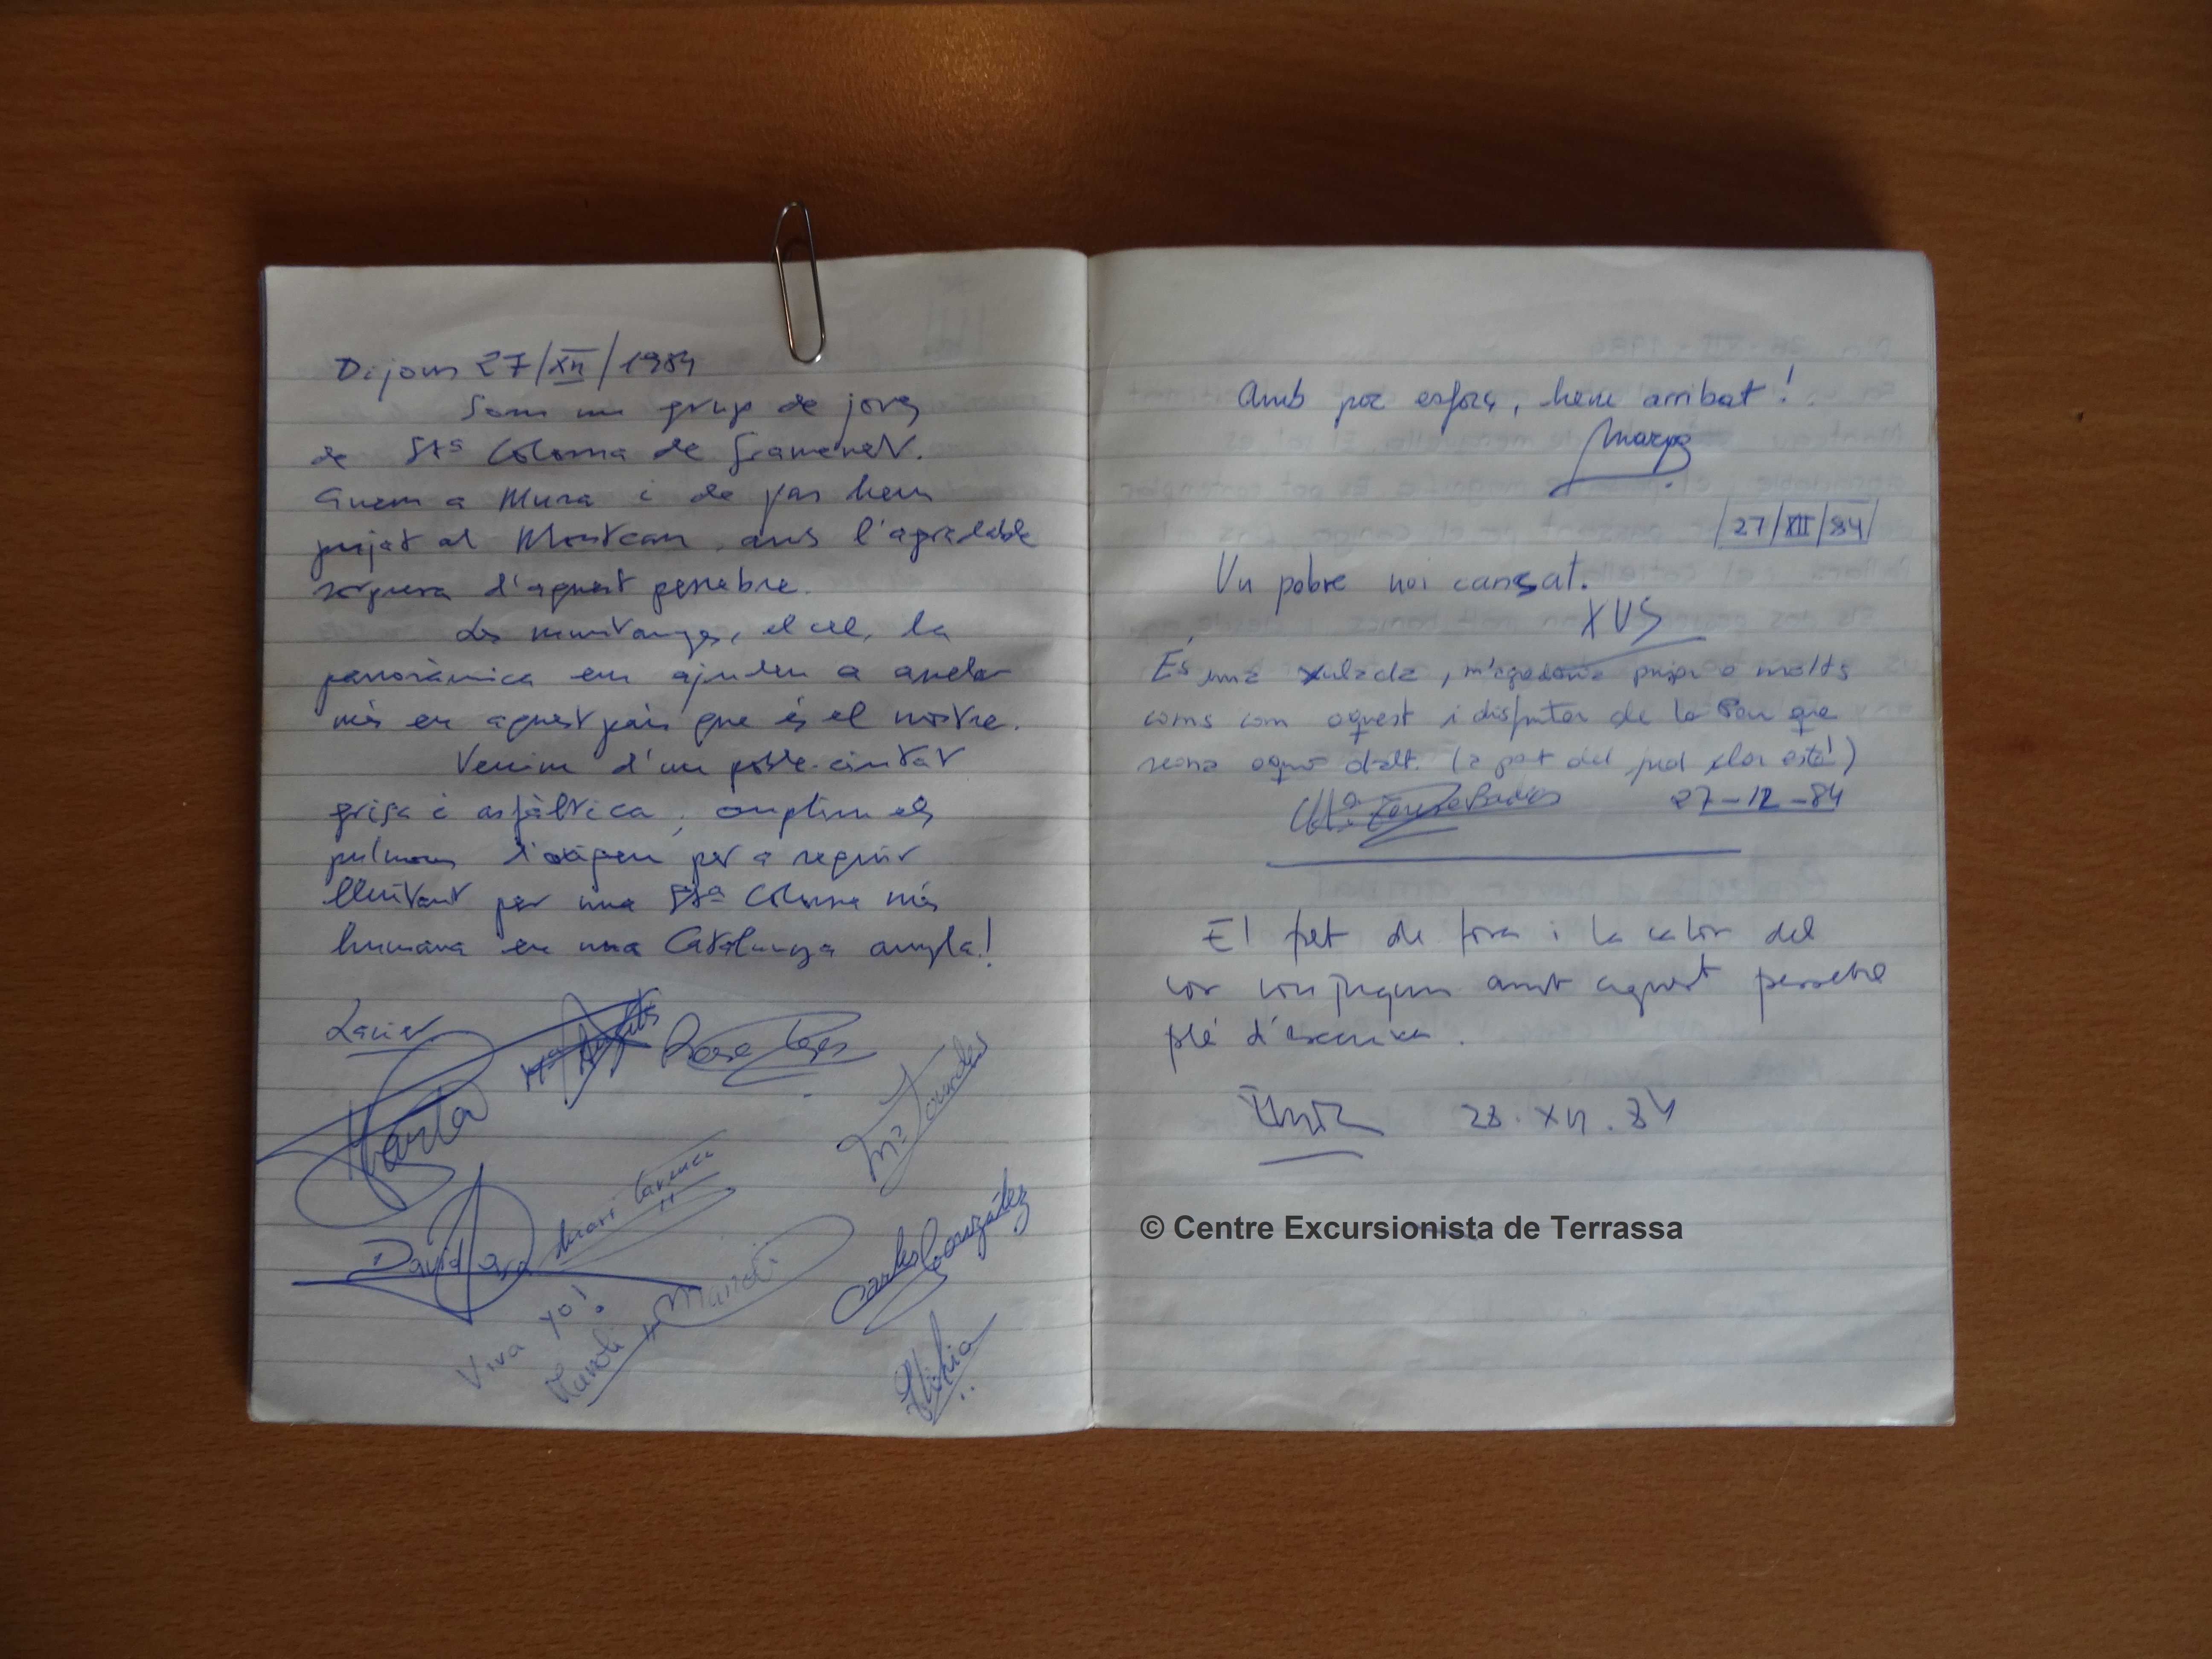 Dijous 27/XII/1984
Som un grup de joves
de Stª Coloma de Gramenet.
Anem a Mura i de pas hem
pujat al Montcau, amb l'agradable
sorpresa d'aquest pessebre.
Les muntanyes, el cel, la
panoràmica em ajuden a arrelar
més en aquest país que és el nostre.
Venim d'un poble-ciutat
grisa i asfàltica, omplim els
pulmons d'oxigen per a seguir
lluitant per una Stª Coloma més
humana en una Catalunya ampla!
Xavier
Mª Àngels
Rosa
Marta
Mª Lourdes
David
Mari Carmen
Carles González
Viva yo!
Manoli
Manoli
Amb poc esforç, hem arribat!
27/XII/84
Un pobre noi cansat.
XUS
És una xulada, m'agradaria pujar a molts
cims com aquest i disfrutar de la Pau que
regna aquí dalt. (a part del fred clar està!)
Mª Teresa
27-12-84
El fret de fora i la calor del
cor conjuguen amb aquest pessebre
plé d'escurixa.
28.XII.84
© Centre Excursionista de Terrassa